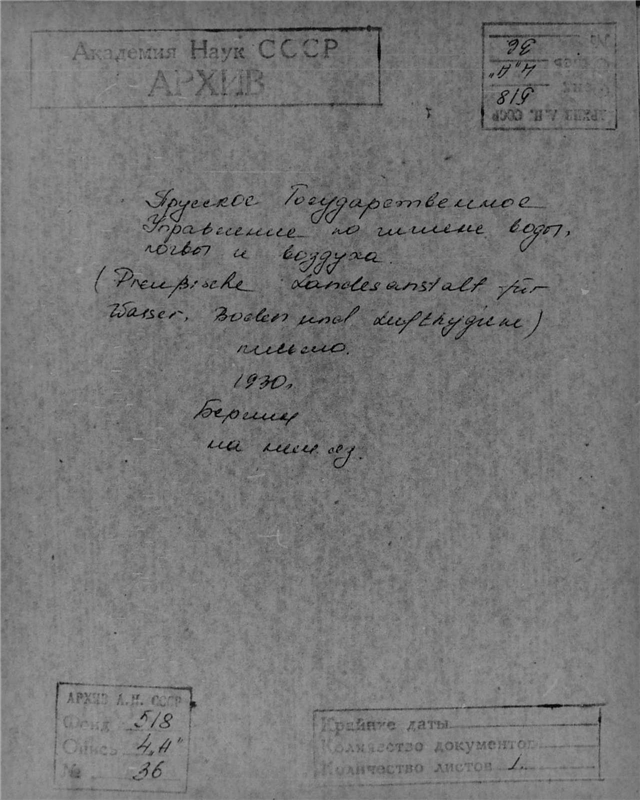 Академия Наук СССР
АРХИВ
№ 36
Опись 4 „А“
Фонд 518
АРХИВ А.Н. СССР
Прусское Государственное
Управление по гигиене воды,
почвы и воздуха.
(Preußische Landesanstalt für
Wasser, Boden und Lufthygiene)
письмо.
1930г.
Берлин
на нем. яз.
АРХИВ А.Н. СССР
Фонд 518
Опись 4 „А“
№ 36
Крайние даты
Количество документов
Количество листов 1.